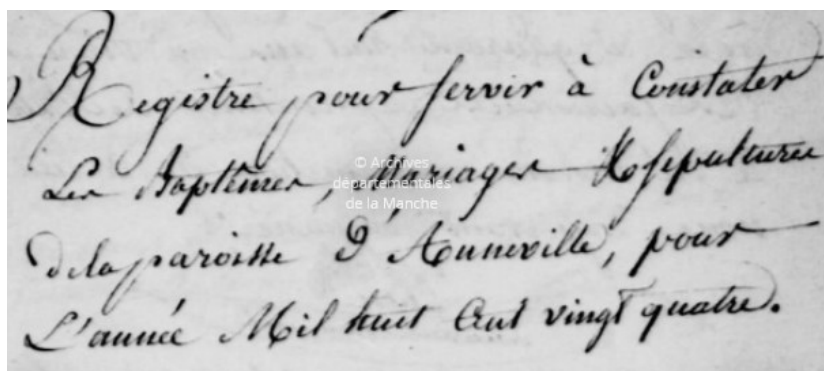 Registre pour servir à Constater
Les Baptêmes, Mariages & sepultures
de la paroisse d'Anneville, pour
L'année Mil huit Cent vingt quatre.
© Archives
départementales
de la Manche